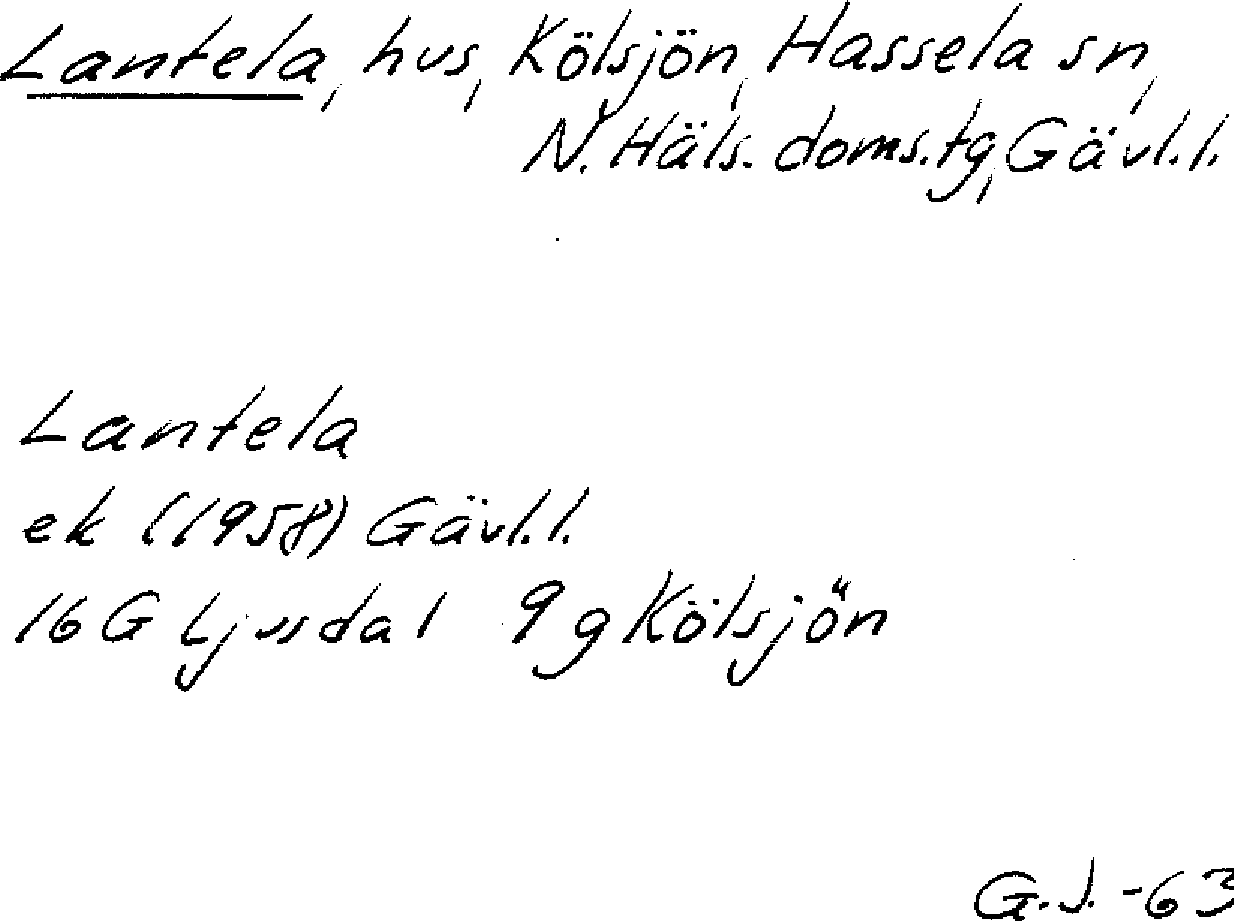 Lantela, hus, Kölsjön, Hassela sn,
N. Häls. doms.tg, Gävl.l.
Lantela
ek (1958) Gävl.l.
16 G Ljusdal 9 g Kölsjön
G.J. -63